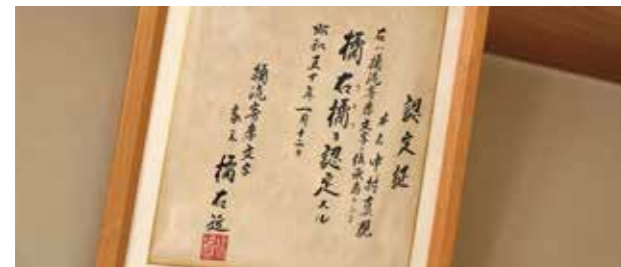 認定証
本名 中村真規
右ハ橘流寄席文字ノ伝承者トシテ
橘右橘ト認定スル
昭和五十年一月十二日
橘流寄席文字
家元 橘右近